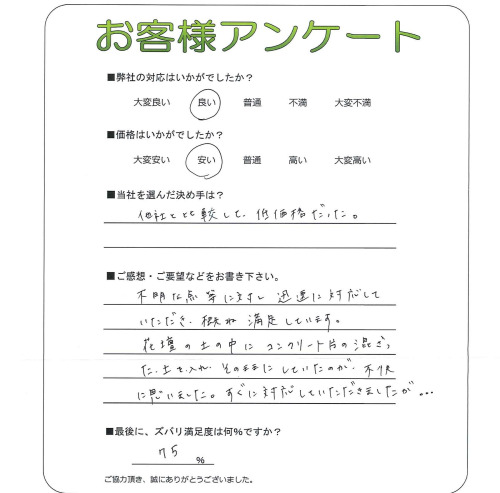 お客様アンケート
■弊社の対応はいかがでしたか？
大変良い 良い 普通 不満 大変不満
■価格はいかがでしたか？
大変安い 安い 普通 高い 大変高い
■当社を選んだ決め手は？
他社と比較して、低価格だった。
■ご感想・ご要望などをお書き下さい。
不明な点等に対し 迅速に対応して
いただき、概ね満足しています。
花壇の土の中にコンクリート片の混ざっ
た土を入れ そのままにしていたのが、不快
に思いました。すぐに対応していただきましたが…
■最後に、ズバリ満足度は何％ですか？
75 %
ご協力頂き、誠にありがとうございました。